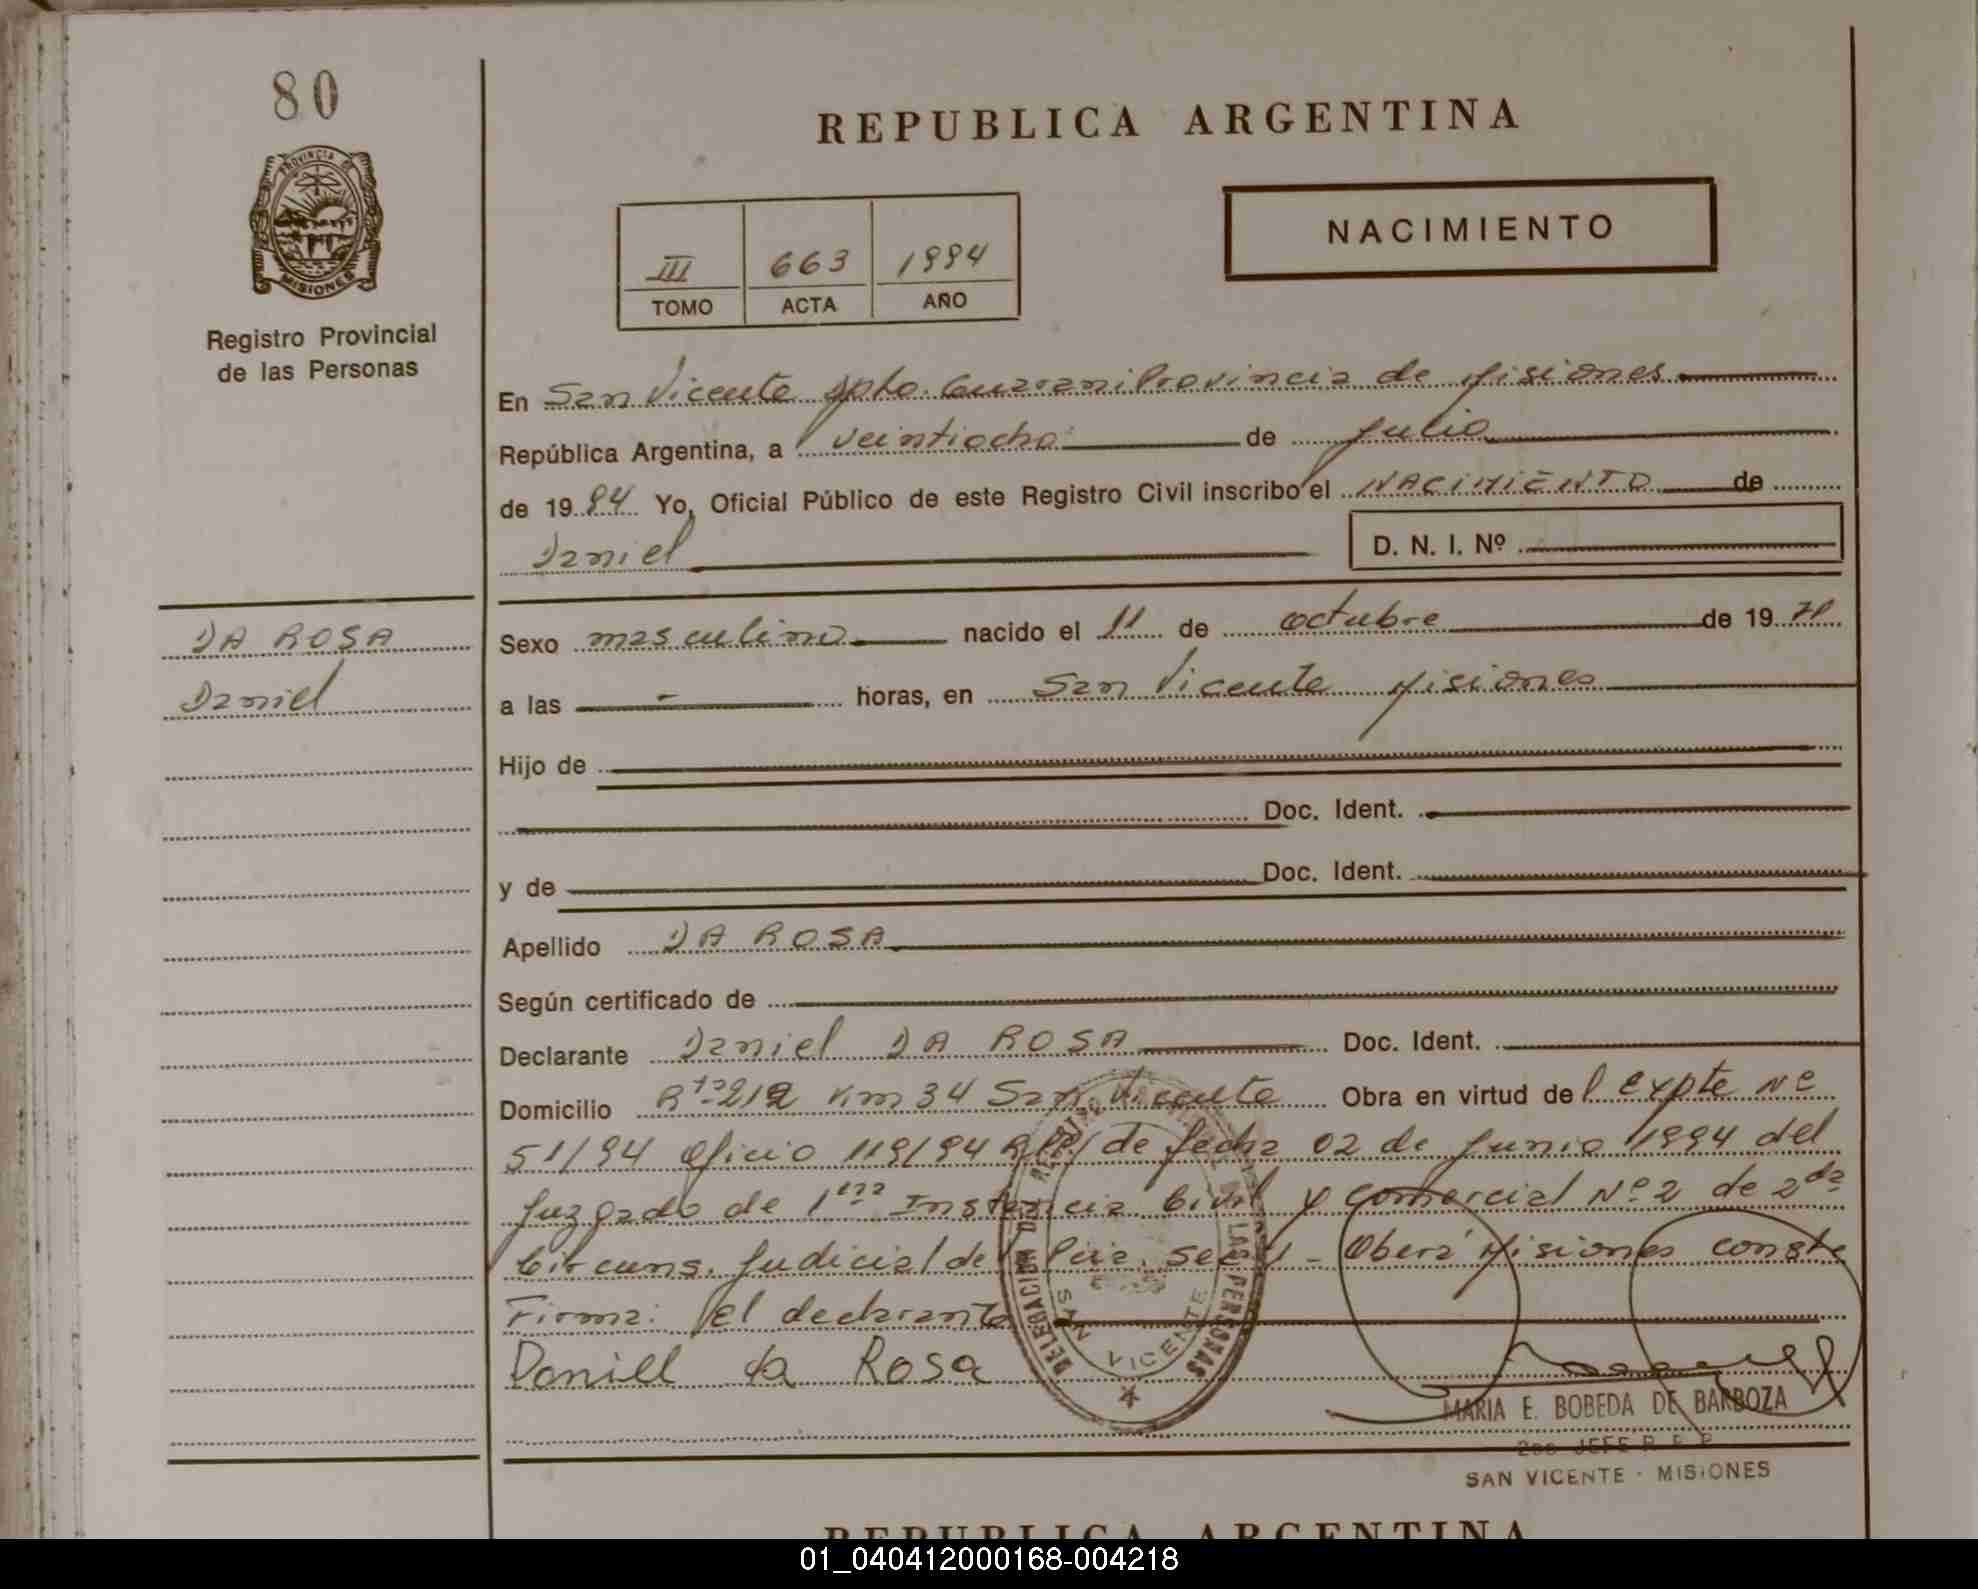 80
PROVINCIA DE
MISIONES
Registro Provincial
de las Personas
REPUBLICA ARGENTINA
NACIMIENTO
III 663 1994
TOMO ACTA AÑO
En San Vicente Dpto. Guarani Provincia de Misiones
República Argentina, a veintiocho de Julio
de 1994 Yo, Oficial Público de este Registro Civil inscribo el NACIMIENTO de
Daniel D. N. I. Nº
DA ROSA
Daniel
Sexo masculino nacido el 11 de octubre de 19 71
a las - horas, en San Vicente Misiones
Hijo de
Doc. Ident.
y de Doc. Ident.
Apellido DA ROSA
Según certificado de
Declarante Daniel DA ROSA Doc. Ident.
Domicilio Rta 212 Km 34 San Vicente Obra en virtud del Expte Nº
51/94 Oficio 119/94 de fecha 02 de Junio 1994 del
Juzgado de 1era Instancia Civil y Comercial Nº 2 de 2da
Circuns. Judicial de Pcia. Sec. - Oberá Misiones conste
Firma: el declarante
Daniell da Rosa
DELEGACION DE REGISTRO PROVINCIAL DE LAS PERSONAS
SAN VICENTE
MARIA E. BOBEDA DE BARBOZA
2do JEFE R P P
SAN VICENTE - MISIONES
REPUBLICA ARGENTINA
01_040412000168-004218